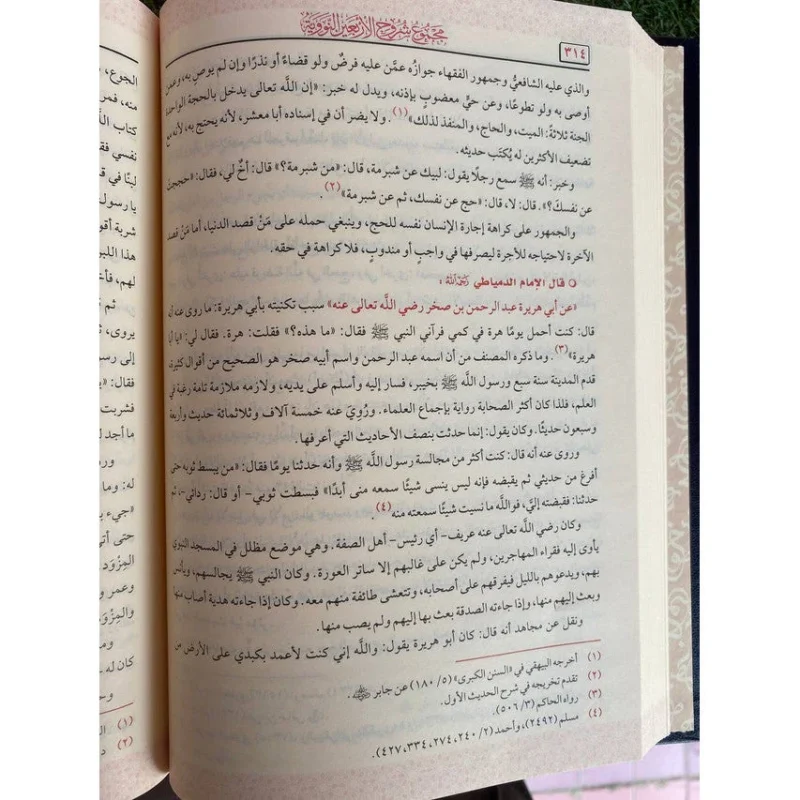 مجموع شروح الأربعين النووية
٣١٤
والذي عليه الشافعيُّ وجمهور الفقهاء جوازُه عمَّن عليه فرضٌ ولو قضاءً أو نذرًا وإن لم يوصِ به، وعمن
أوصى به ولو تطوعًا، وعن حيٍّ معضوبٍ بإذنه، ويدل له خبر: «إن اللَّه تعالى يدخل بالحجة الواحدة
الجنة ثلاثةً: الميت، والحاج، والمنفذ لذلك» (١). ولا يضر أن في إسناده أبا معشر، لأنه يحتج به، لأنه مع
تضعيف الأكثرين له يُكتَب حديثه.
وخبر: أنه ﷺ سمع رجلًا يقول: لبيك عن شبرمة، قال: «من شبرمة؟» قال: أخٌ لي، فقال: «حججت
عن نفسكَ؟». قال: لا، قال: «حج عن نفسك، ثم عن شبرمة» (٢).
والجمهور على كراهة إجارة الإنسان نفسه للحج، وينبغي حمله على مَنْ قصد الدنيا، أما مَنْ قصد
الآخرة لاحتياجه للأجرة ليصرفها في واجبٍ أو مندوبٍ، فلا كراهة في حقه.
○ قال الإمام الدمياطي رحمه الله:
«عن أبي هريرة عبد الرحمن بن صخر رضي اللَّه تعالى عنه» سبب تكنيته بأبي هريرة: ما روى عنه أنه
قال: كنت أحمل يومًا هرة في كمي فرآني النبي ﷺ فقال: «ما هذه؟» فقلت: هرة. فقال لي: «يا أبا
هريرة» (٣). وما ذكره المصنف من أن اسمه عبد الرحمن واسم أبيه صخر هو الصحيح من أقوال كثيرة،
قدم المدينة سنة سبع ورسول اللَّه ﷺ بخيبر، فسار إليه وأسلم على يديه، ولازمه ملازمة تامة رغبة في
العلم، فلذا كان أكثر الصحابة رواية بإجماع العلماء. ورُوِيَ عنه خمسة آلاف وثلاثمائة حديث وأربعة
وسبعون حديثًا. وكان يقول: إنما حدثت بنصف الأحاديث التي أعرفها.
وروى عنه أنه قال: كنت أكثر من مجالسة رسول اللَّه ﷺ وأنه حدثنا يومًا فقال: «من يبسط ثوبه حتى
أفرغ من حديثي ثم يقبضه فإنه ليس ينسى شيئًا سمعه منى أبدًا» فبسطت ثوبي- أو قال: ردائي-، ثم
حدثنا: فقبضته إليَّ، فواللَّه ما نسيت شيئًا سمعته منه (٤).
وكان رضي اللَّه تعالى عنه عريف- أي رئيس- أهل الصفة. وهي موضع مظلل في المسجد النبوي
يأوى إليه فقراء المهاجرين، ولم يكن على غالبهم إلا ساتر العورة. وكان النبي ﷺ يجالسهم، ويأنس
بهم، ويدعوهم بالليل فيفرقهم على أصحابه، وتتعشى طائفة منهم معه. وكان إذا جاءته هدية أصاب منها
وبعث إليهم منها، وإذا جاءته الصدقة بعث بها إليهم ولم يصب منها.
ونقل عن مجاهد أنه قال: كان أبو هريرة يقول: واللَّه إني كنت لأعمد بكبدي على الأرض من
(١) أخرجه البيهقي في «السنن الكبرى» (٥/ ١٨٠) عن جابر رضي الله عنه.
(٢) تقدم تخريجه في شرح الحديث الأول.
(٣) رواه الحاكم (٣/ ٥٠٦).
(٤) مسلم (٢٤٩٢)، وأحمد (٢/ ٢٤٠، ٢٧٤، ٣٣٤، ٤٢٧).
الجوع،
منه، فمر
كتاب اللَّه
نفسي فق
لبنًا في ق
يا رسول
شربة أقو
هذا اللبن
لهم، فأخ
ثم
يروى،
إلى رس
فقال: «
فشربت
ما أجد ل
ورو
له: وما
«جيء ب
حتى أتى
المِزْوَد
وعمر و
والمِزْوَد
كان له
وح
(١)
(٢)